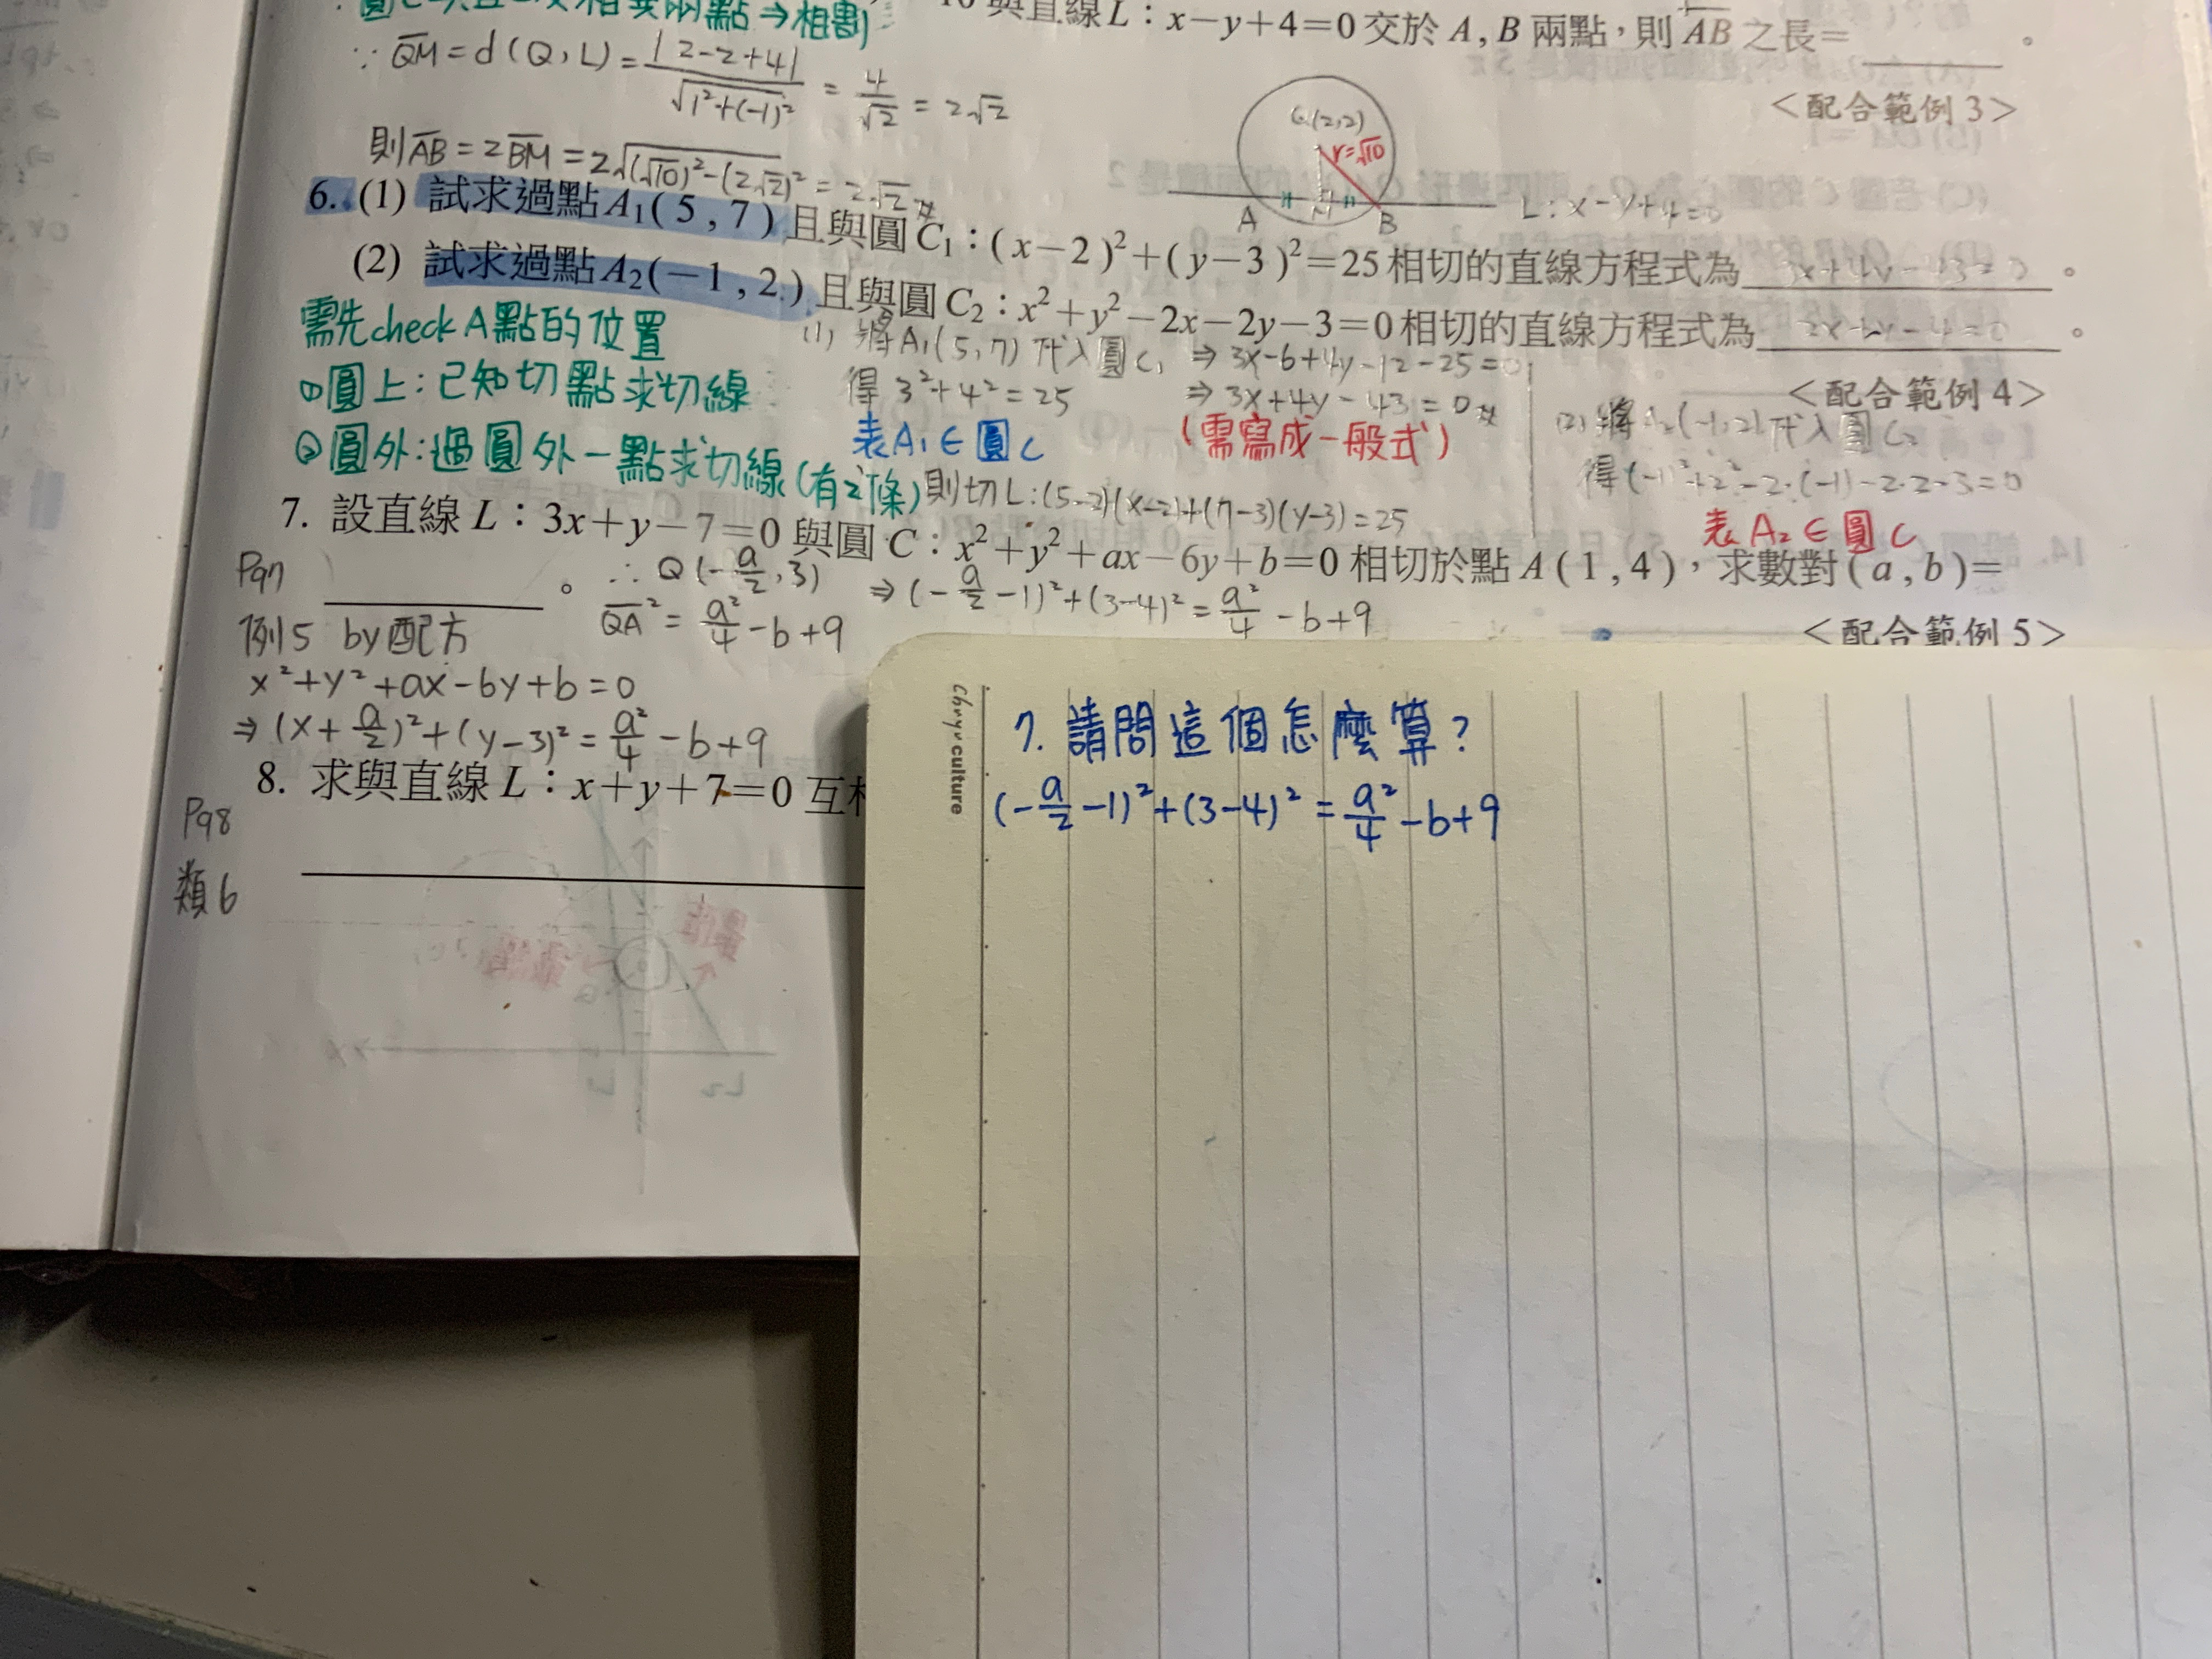 與直線L：x－y＋4＝0 交於 A , B 兩點，則 AB 之長＝ 。
兩點⇒相割)
∵ QM = d (Q, L) = |2-2+4| / √1²+(-1)² = 4/√2 = 2√2
<配合範例 3>
(2,2)
r=√10
則 AB = 2BM = 2√(√10)²-(2√2)² = 2√2 #
A M B L : x-y+4=0
6. (1) 試求過點A₁( 5 , 7 ) 且與圓 C₁：( x－2 )²＋( y－3 )²＝25 相切的直線方程式為 3x+4y-43=0 。
(2) 試求過點A₂(－1 , 2 ) 且與圓 C₂：x²＋y²－2x－2y－3＝0 相切的直線方程式為 。
<配合範例 4>
需先check A點的位置
①圓上：已知切點求切線
②圓外：過圓外一點求切線(有2條)
(1) 將A₁(5,7) 代入圓C₁
得 3²+4²=25
表A₁∈圓C
則切L:(5-2)(x-2)+(7-3)(y-3)=25
⇒ 3x-6+4y-12-25=0
⇒ 3x+4y-43=0 #
(需寫成一般式)
(2) 將A₂(-1,2)代入圓C₂
得(-1)²+2²-2·(-1)-2·2-3=0
表A₂∈圓C
7. 設直線 L：3x＋y－7＝0 與圓 C：x²＋y²＋ax－6y＋b＝0 相切於點 A ( 1 , 4 )，求數對 ( a , b )＝
。
<配合範例 5>
P97
例5 by配方
x²+y²+ax-6y+b=0
⇒ (x+a/2)²+(y-3)²= a²/4 -b+9
∴ Q (-a/2, 3)
QA² = a²/4 -b+9
⇒ (-a/2 -1)²+(3-4)²= a²/4 -b+9
8. 求與直線 L：x＋y＋7＝0 互
P98
類6
culture
7. 請問這個怎麼算?
(-a/2 -1)²+(3-4)² = a²/4 -b+9